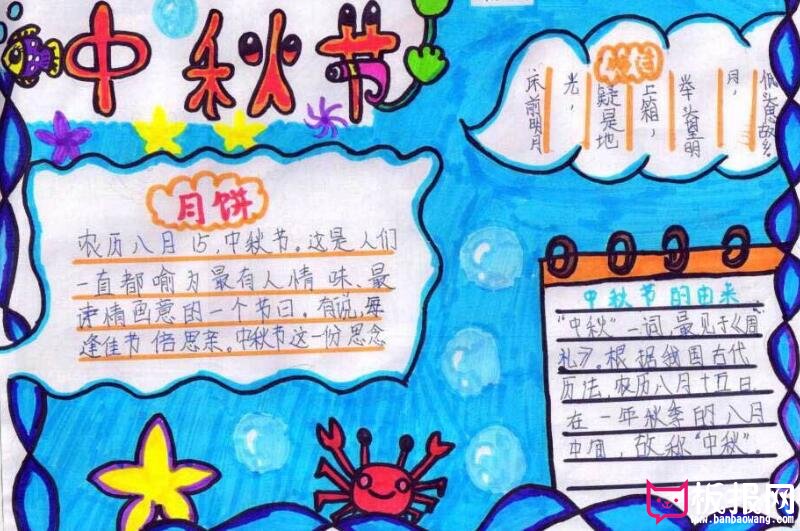 中秋节
月饼
农历八月15,中秋节。这是人们
一直都喻为最有人情味、最
诗情画意的一个节日。有说,每
逢佳节倍思亲。中秋节这一份思念
床前明月
光,
疑是地
上霜,
举头望明
月,
低头思故乡。
中秋节的由来
“中秋”一词,最见于《周
礼》。根据我国古代
历法,农历八月十五日
在一年秋季的八月
中间,故称“中秋”。
板报网
www.banbaowang.com